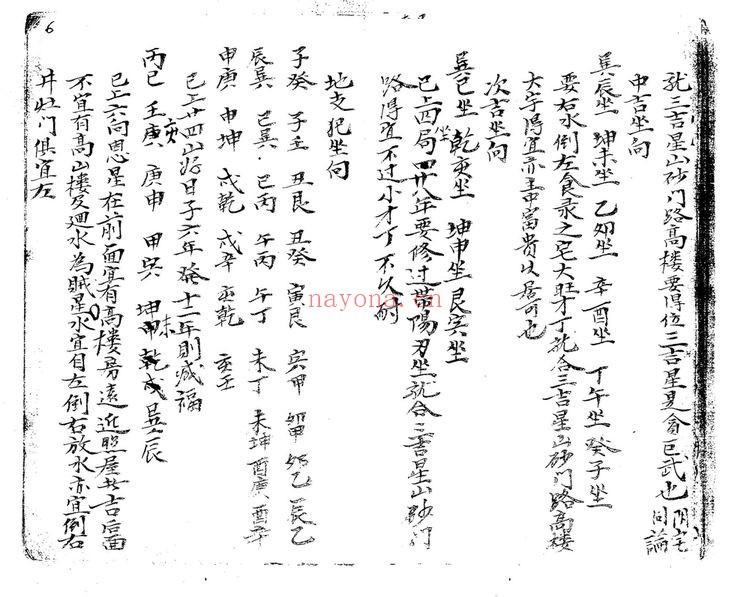 6
就三吉星山砂門路高楼要得位三吉星是貪巨武也 阴宅同論
中吉坐向
巽辰坐 坤未坐 乙卯坐 辛酉坐 丁午坐 癸子坐
要右水倒左食录之宅大旺才丁就合三吉星山砂门路高楼
大字得宜亦主中富贵久居可也
次吉坐向
巽巳坐 乾亥坐 坤申坐 艮寅坐
已上四局坐廿八年要修过带陽刃坐就合三吉星山砂门
路得宜不过小才丁不久耐
地支犯坐向
子癸 子壬 丑艮 丑癸 寅艮 寅甲 卯甲 卯乙 辰乙
辰巽 巳巽 巳丙 午丙 午丁 未丁 未坤 酉庚 酉辛
申庚 申坤 戌乾 戌辛 亥乾 亥壬
已上廿四山好日子六年発十二年則减福
丙巳 壬亥 庚申 甲寅 坤未 乾戌 巽辰
已上六向恩星在前面宜有高楼房遠近照屋大吉后面
不宜有高山楼及廻水為賊星水宜自左倒右放水亦宜倒右
井灶门俱宜左
nayona.cn